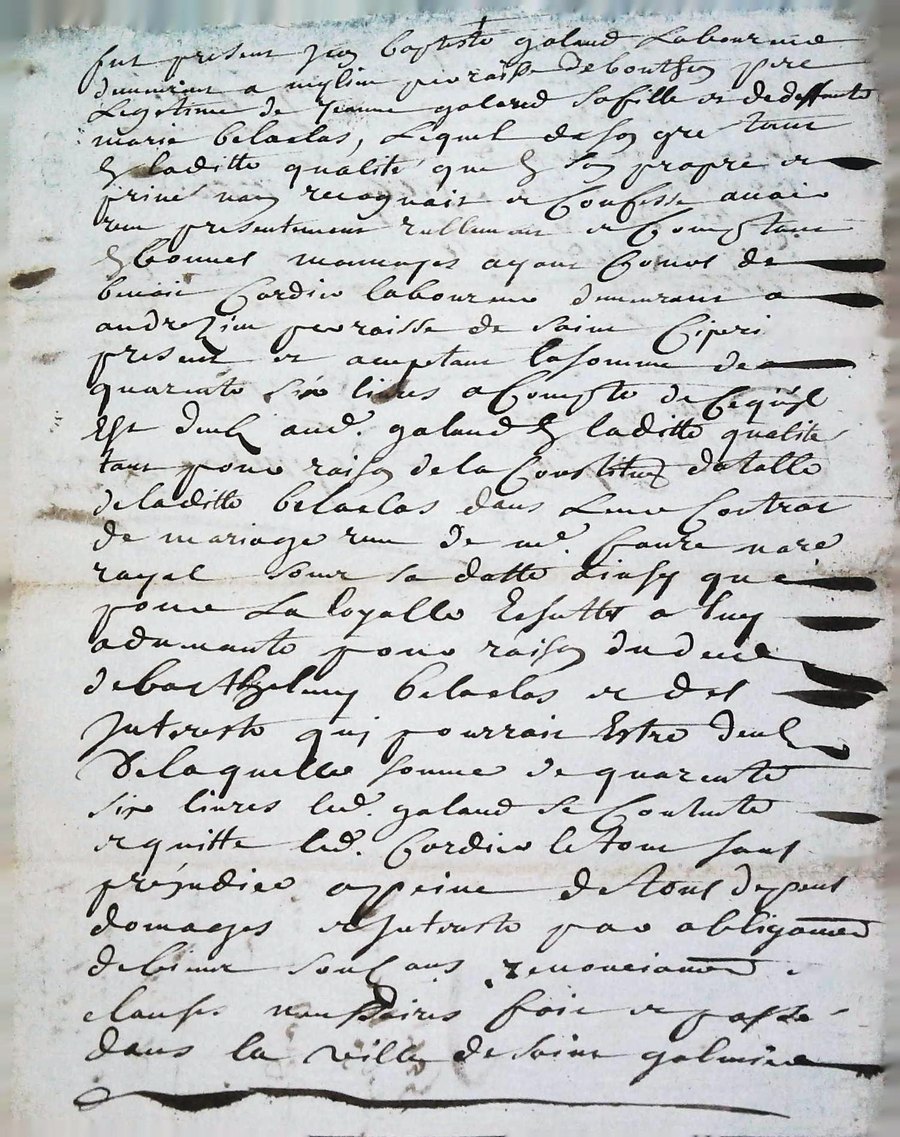 fut present Jean baptiste galand Laboureur
demeurant a meylieu parroisse de bouthéon pere
Legitime de Jeanne galand safille et de deffunte
marie belaclas, Lequel de son gré tant
En laditte qualité que En son propre et
privé nom recognait et Confesse avoir
reçu presentement reellement et Comptant
En bonnes monnoyes ayant Cours de
benoit Cordier laboureur demeurant a
andrezieu parroisse de saint Cipri
present et aceptant la somme de
quarente six livres a Compte de Ce quil
Est deub aud. galand En laditte qualité
tant pour raison de la Constitution dotalle
de laditte belaclas dans Leur Contrat
de mariage reçu de me. faure nore
rayal sous sa datte ainsy que
pour La loyalle Eschutte a luy
advenante pour raison du deces
de barthelemy belaclas et des
Interests qui pourrait Estre deub
De laquelle somme de quarente
six livres led. galand se Contente
et quitte led. Cordier le tout sans
prejudice a peine de tous depens
domages et Interests par obligaon
de biens soubms renonciaon
clauses necessaires fait et passé
dans la ville de saint galmier